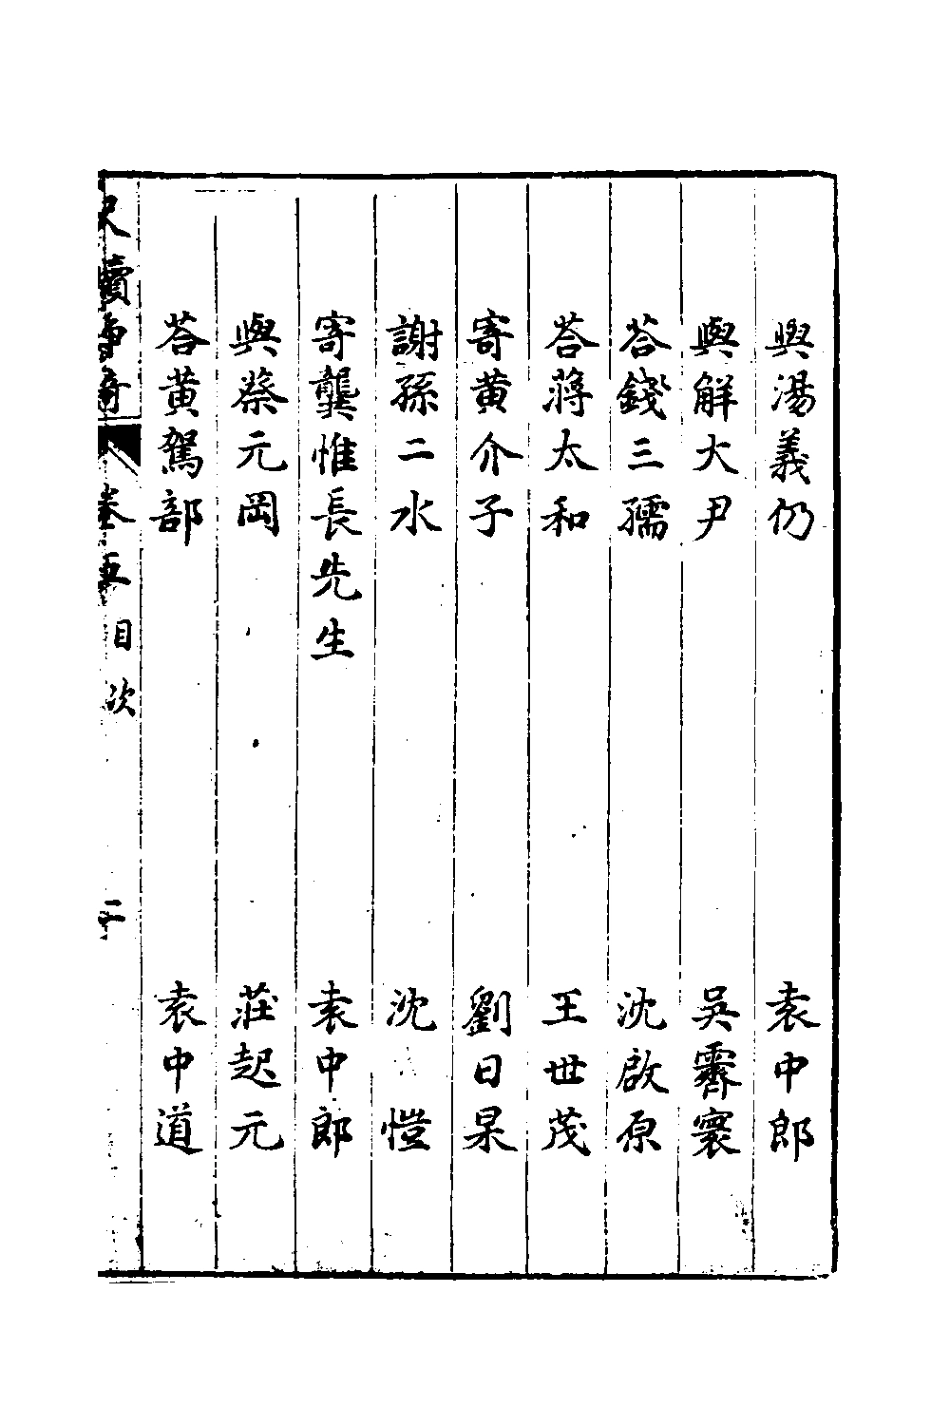 與湯義仍 袁中郎
與解大尹 吳霽寰
荅錢三孺 沈啟原
荅蔣太和 王世茂
寄黄介子 劉日杲
謝孫二水 沈 愷
寄龔惟長先生 袁中郎
與蔡元岡 莊起元
荅黄駕部 袁中道
尺牘爭奇 卷五目次 二